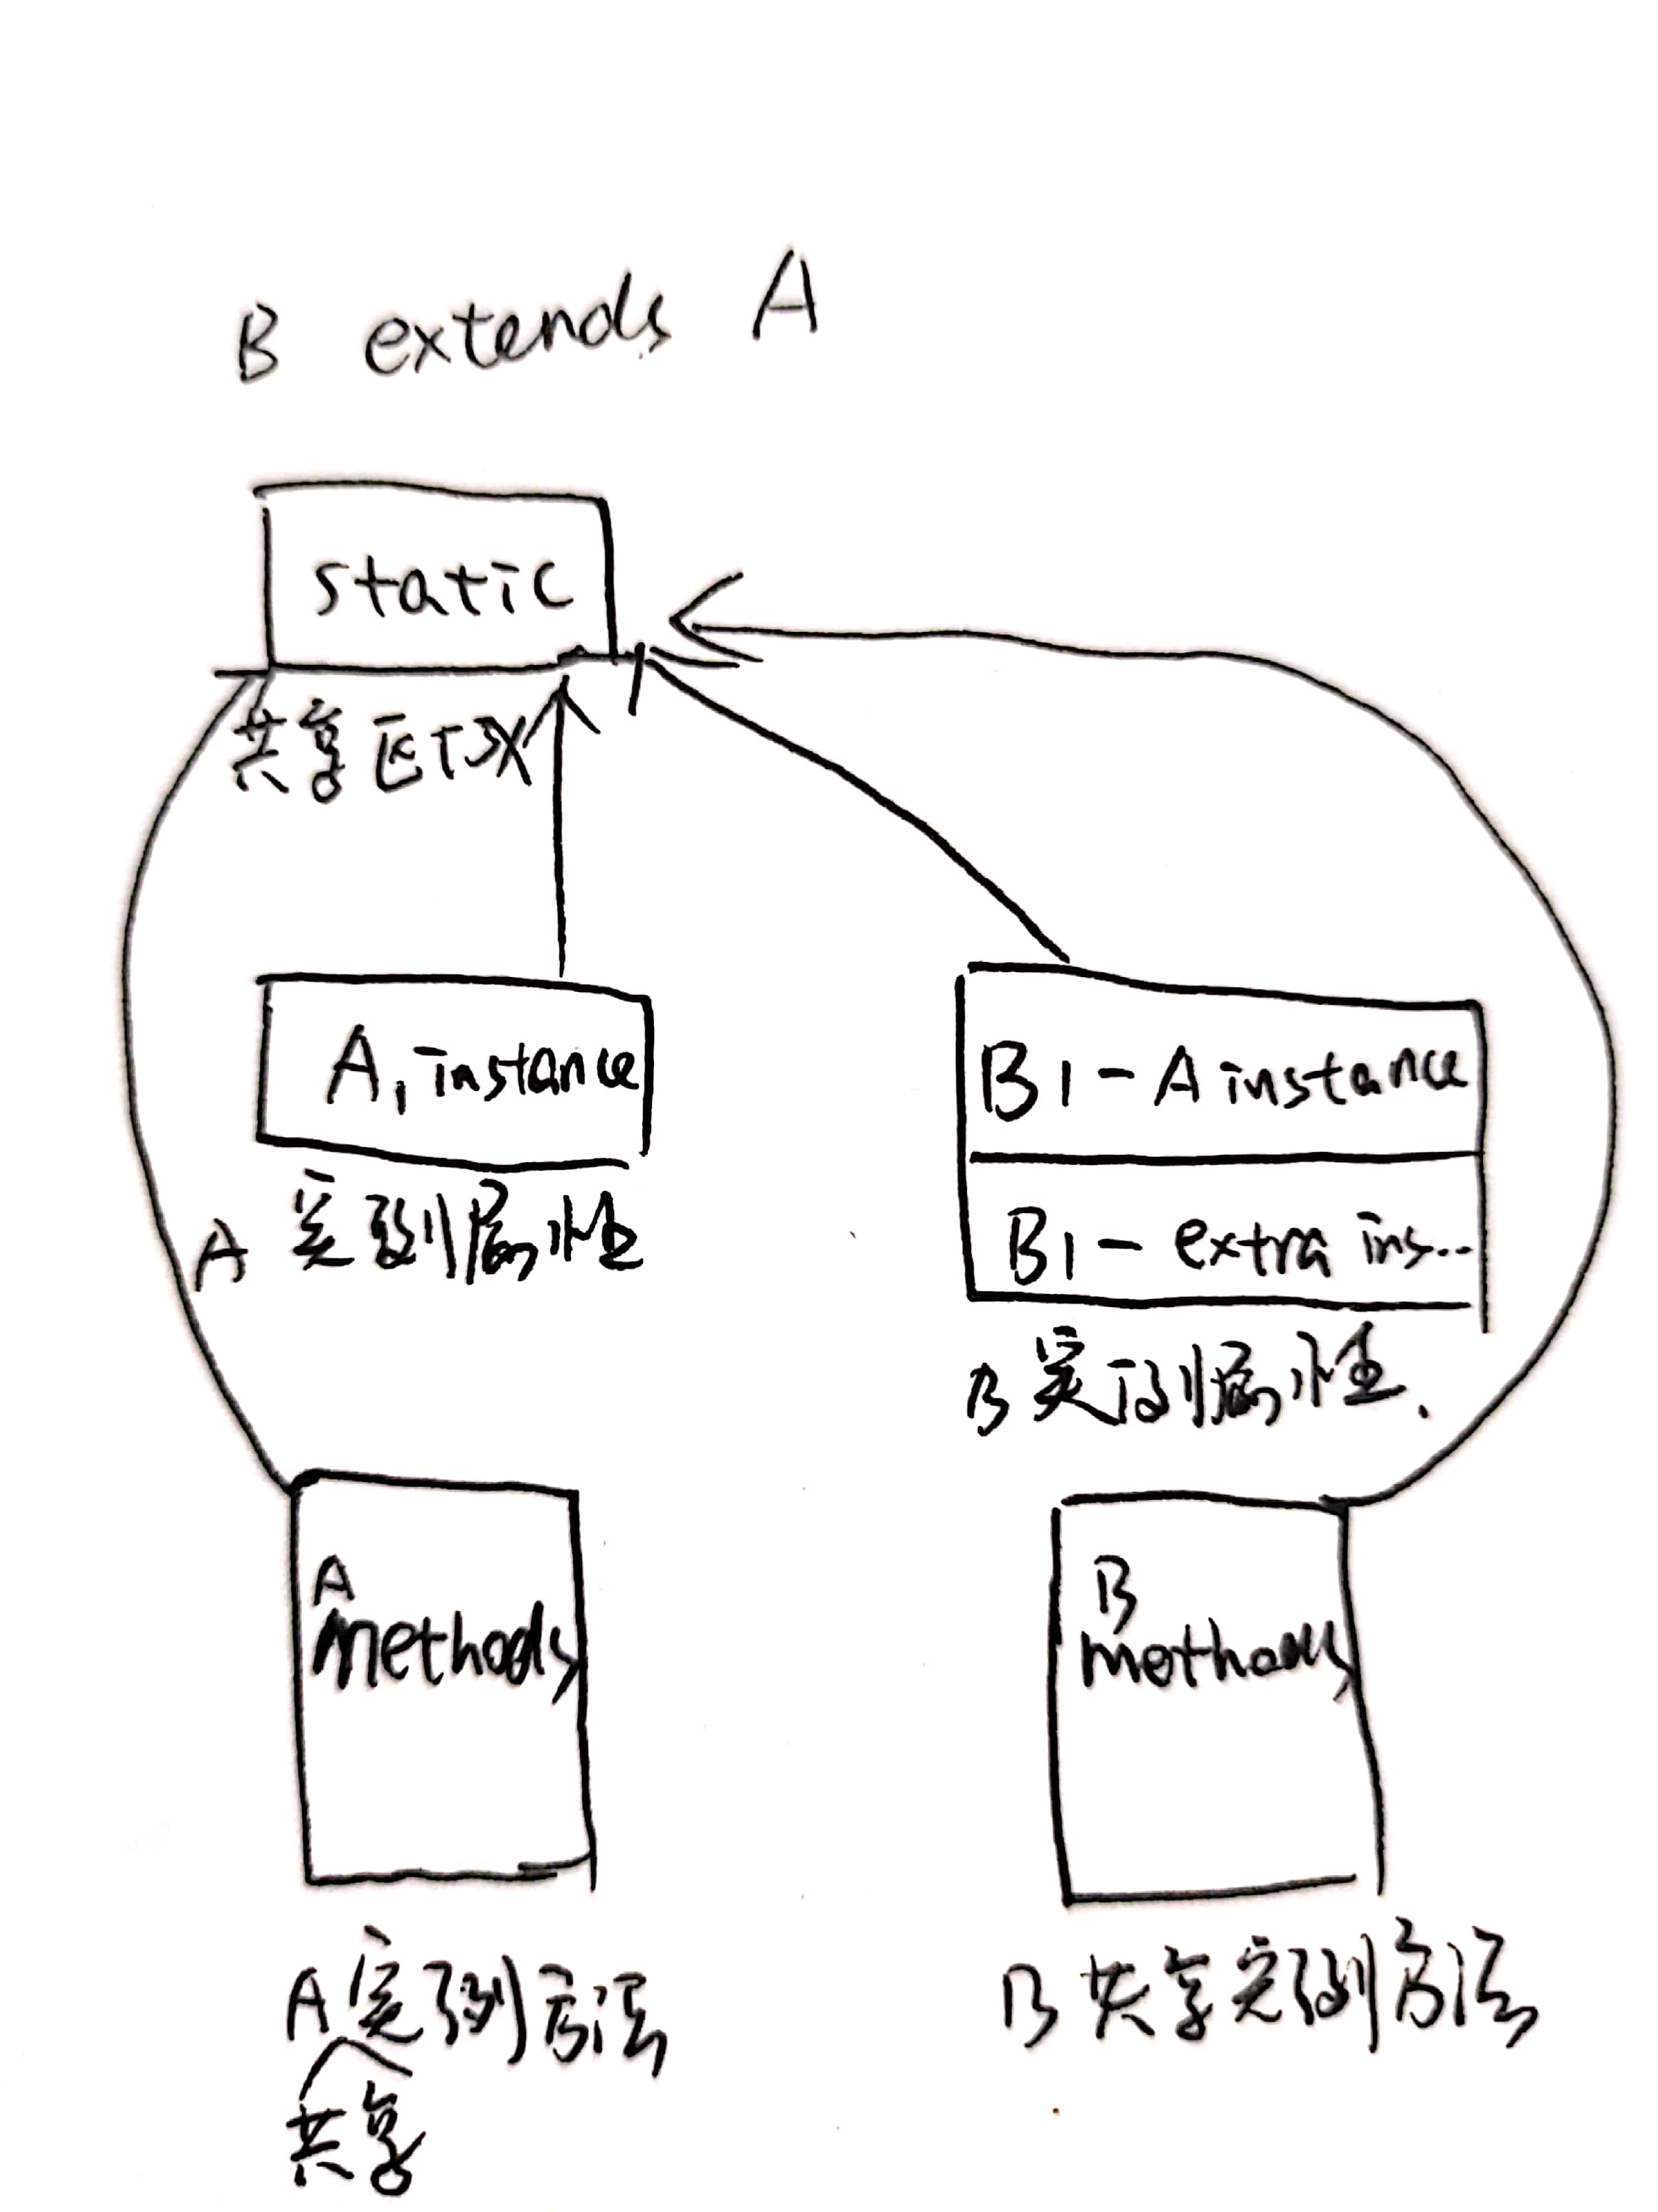 B extends A
static
共享区域
A1 instance
B1 - A instance
A 实例属性
B1 - extra ins...
B 实例属性.
A
methods
B
methods
A实例方法
共享
B共享实例方法